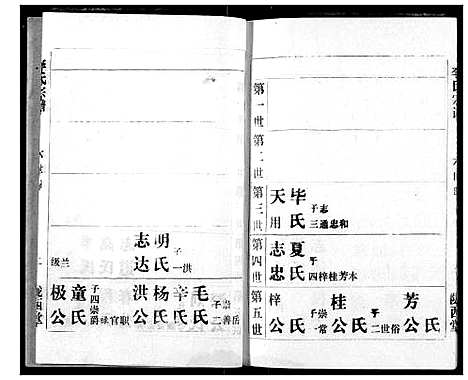 第一世
第二世
第三世
第四世
第五世
天用
毕氏
子三
志通忠和
志忠
夏氏
子四
梓桂芳本
梓公
氏
子一
崇常
桂公
氏
子二
世俗
芳公
氏
李氏宗谱
陇西堂
志达
明氏
子一
洪
级兰
洪公
杨氏
辛氏
毛氏
子二
崇善岳
极公
童氏
子四
崇爵禄官职